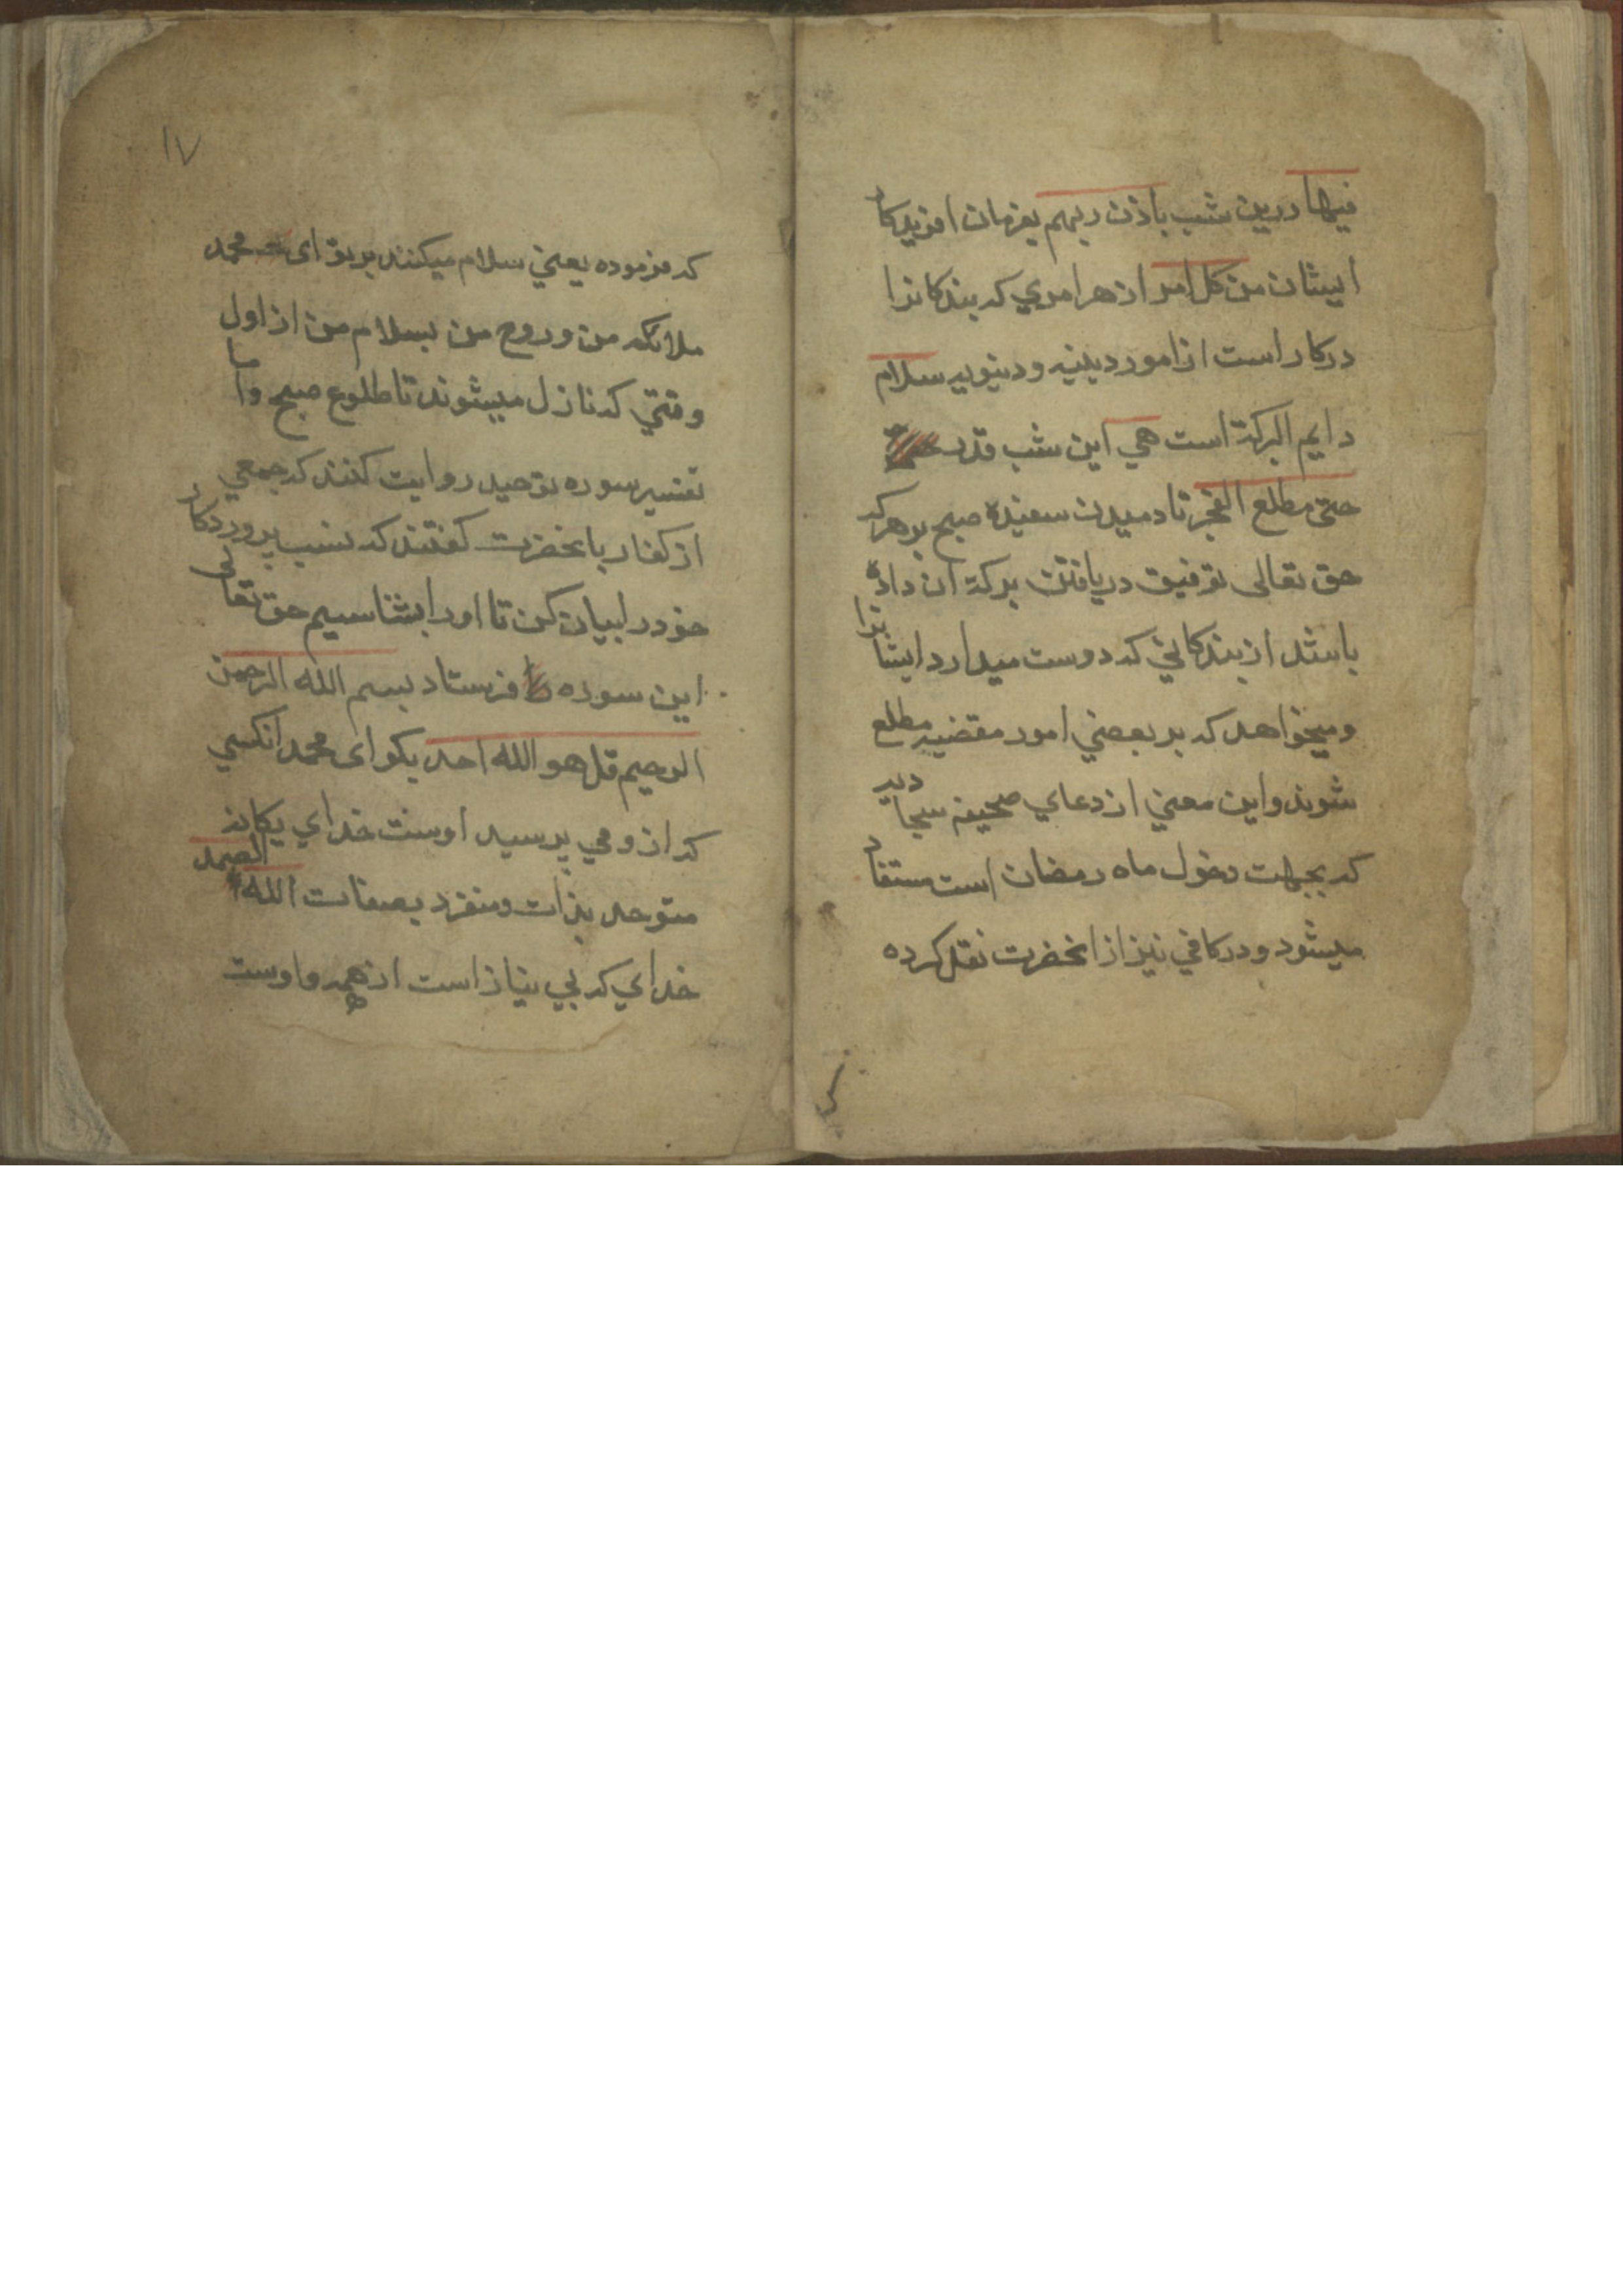 فیها درین شب باذن ربهم بفرمان افریدکار
ایشان من کل امر از هر امری که بندکانرا
درکار است از امور دینیه و دنیویه سلام
دایم البرکة است هی این شب قدر
حتی مطلع الفجر تا دمیدن سفیده صبح بر هر که
حق تعالی توفیق دریافتن برکة ان داده
باشد از بندکانی که دوست میدارد ایشانرا
ومیخواهد که بر بعضی امور مقضیه مطلع
شوند واین معنی از دعای صحیفه سجادیه
که بجهت دخول ماه رمضان است مستفاد
میشود و در کافی نیز از انحضرت نقل کرده
۱۷
که فرموده یعنی سلام میکنند بر تو ای محمد
ملائکه من و روح من بسلام من از اول
وقتی که نازل میشوند تا طلوع صبح واما
تفسیر سوره توحید روایت کنند که جمعی
از کفار بانحضرت کفتند که نسب پروردکار
خود را بیان کن تا او را بشناسیم حق تعالی
این سوره فرستاد بسم الله الرحمن
الرحیم قل هو الله احد بکو ای محمد انکسی
که از و می پرسید اوست خدای یکانه
متوحد بذات ومنفرد بصفات الله الصمد
خدای که بی نیاز است از همه و اوست